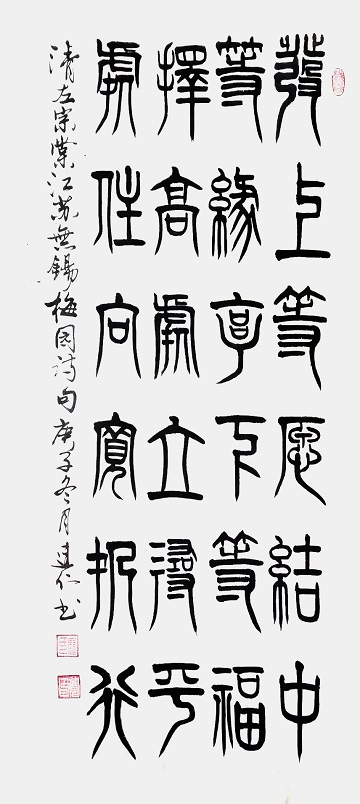 發上等愿結中
等緣享下等福
擇高處立尋平
處住向寬処行
清左宗棠江苏無錫梅園诗句庚子冬月建仁书